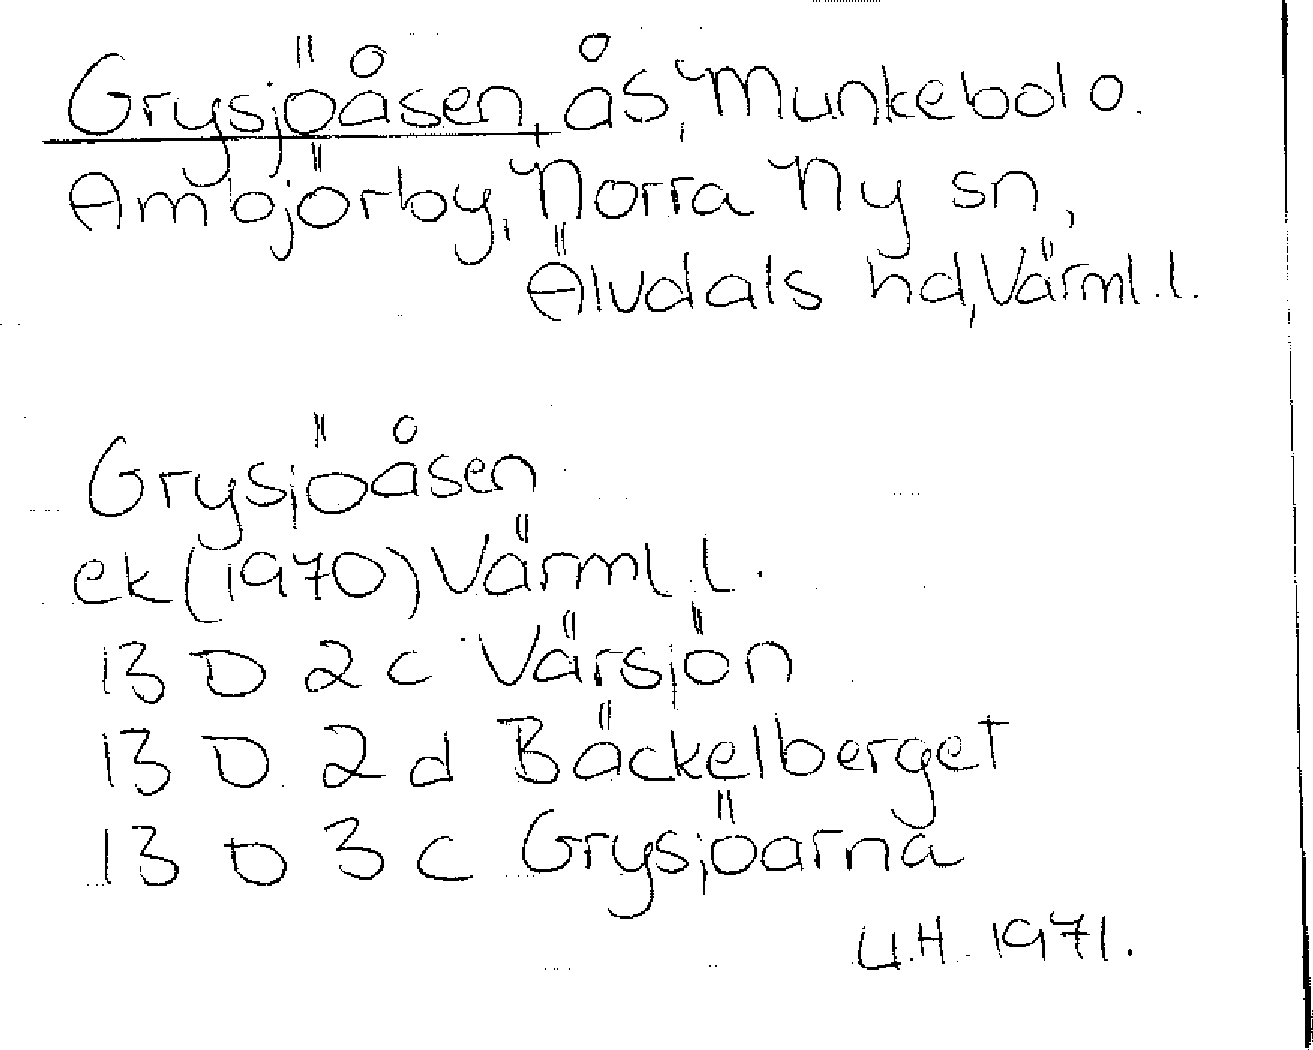 Grysjöåsen, ås, Munkebol o.
Ambjörby, Norra Ny sn,
Älvdals hd, Värml. l.
Grysjöåsen
ek (1970) Värml. l.
13 D 2c Värsjön
13 D 2d Bäckelberget
13 D 3c Grysjöarna
U.H. 1971.